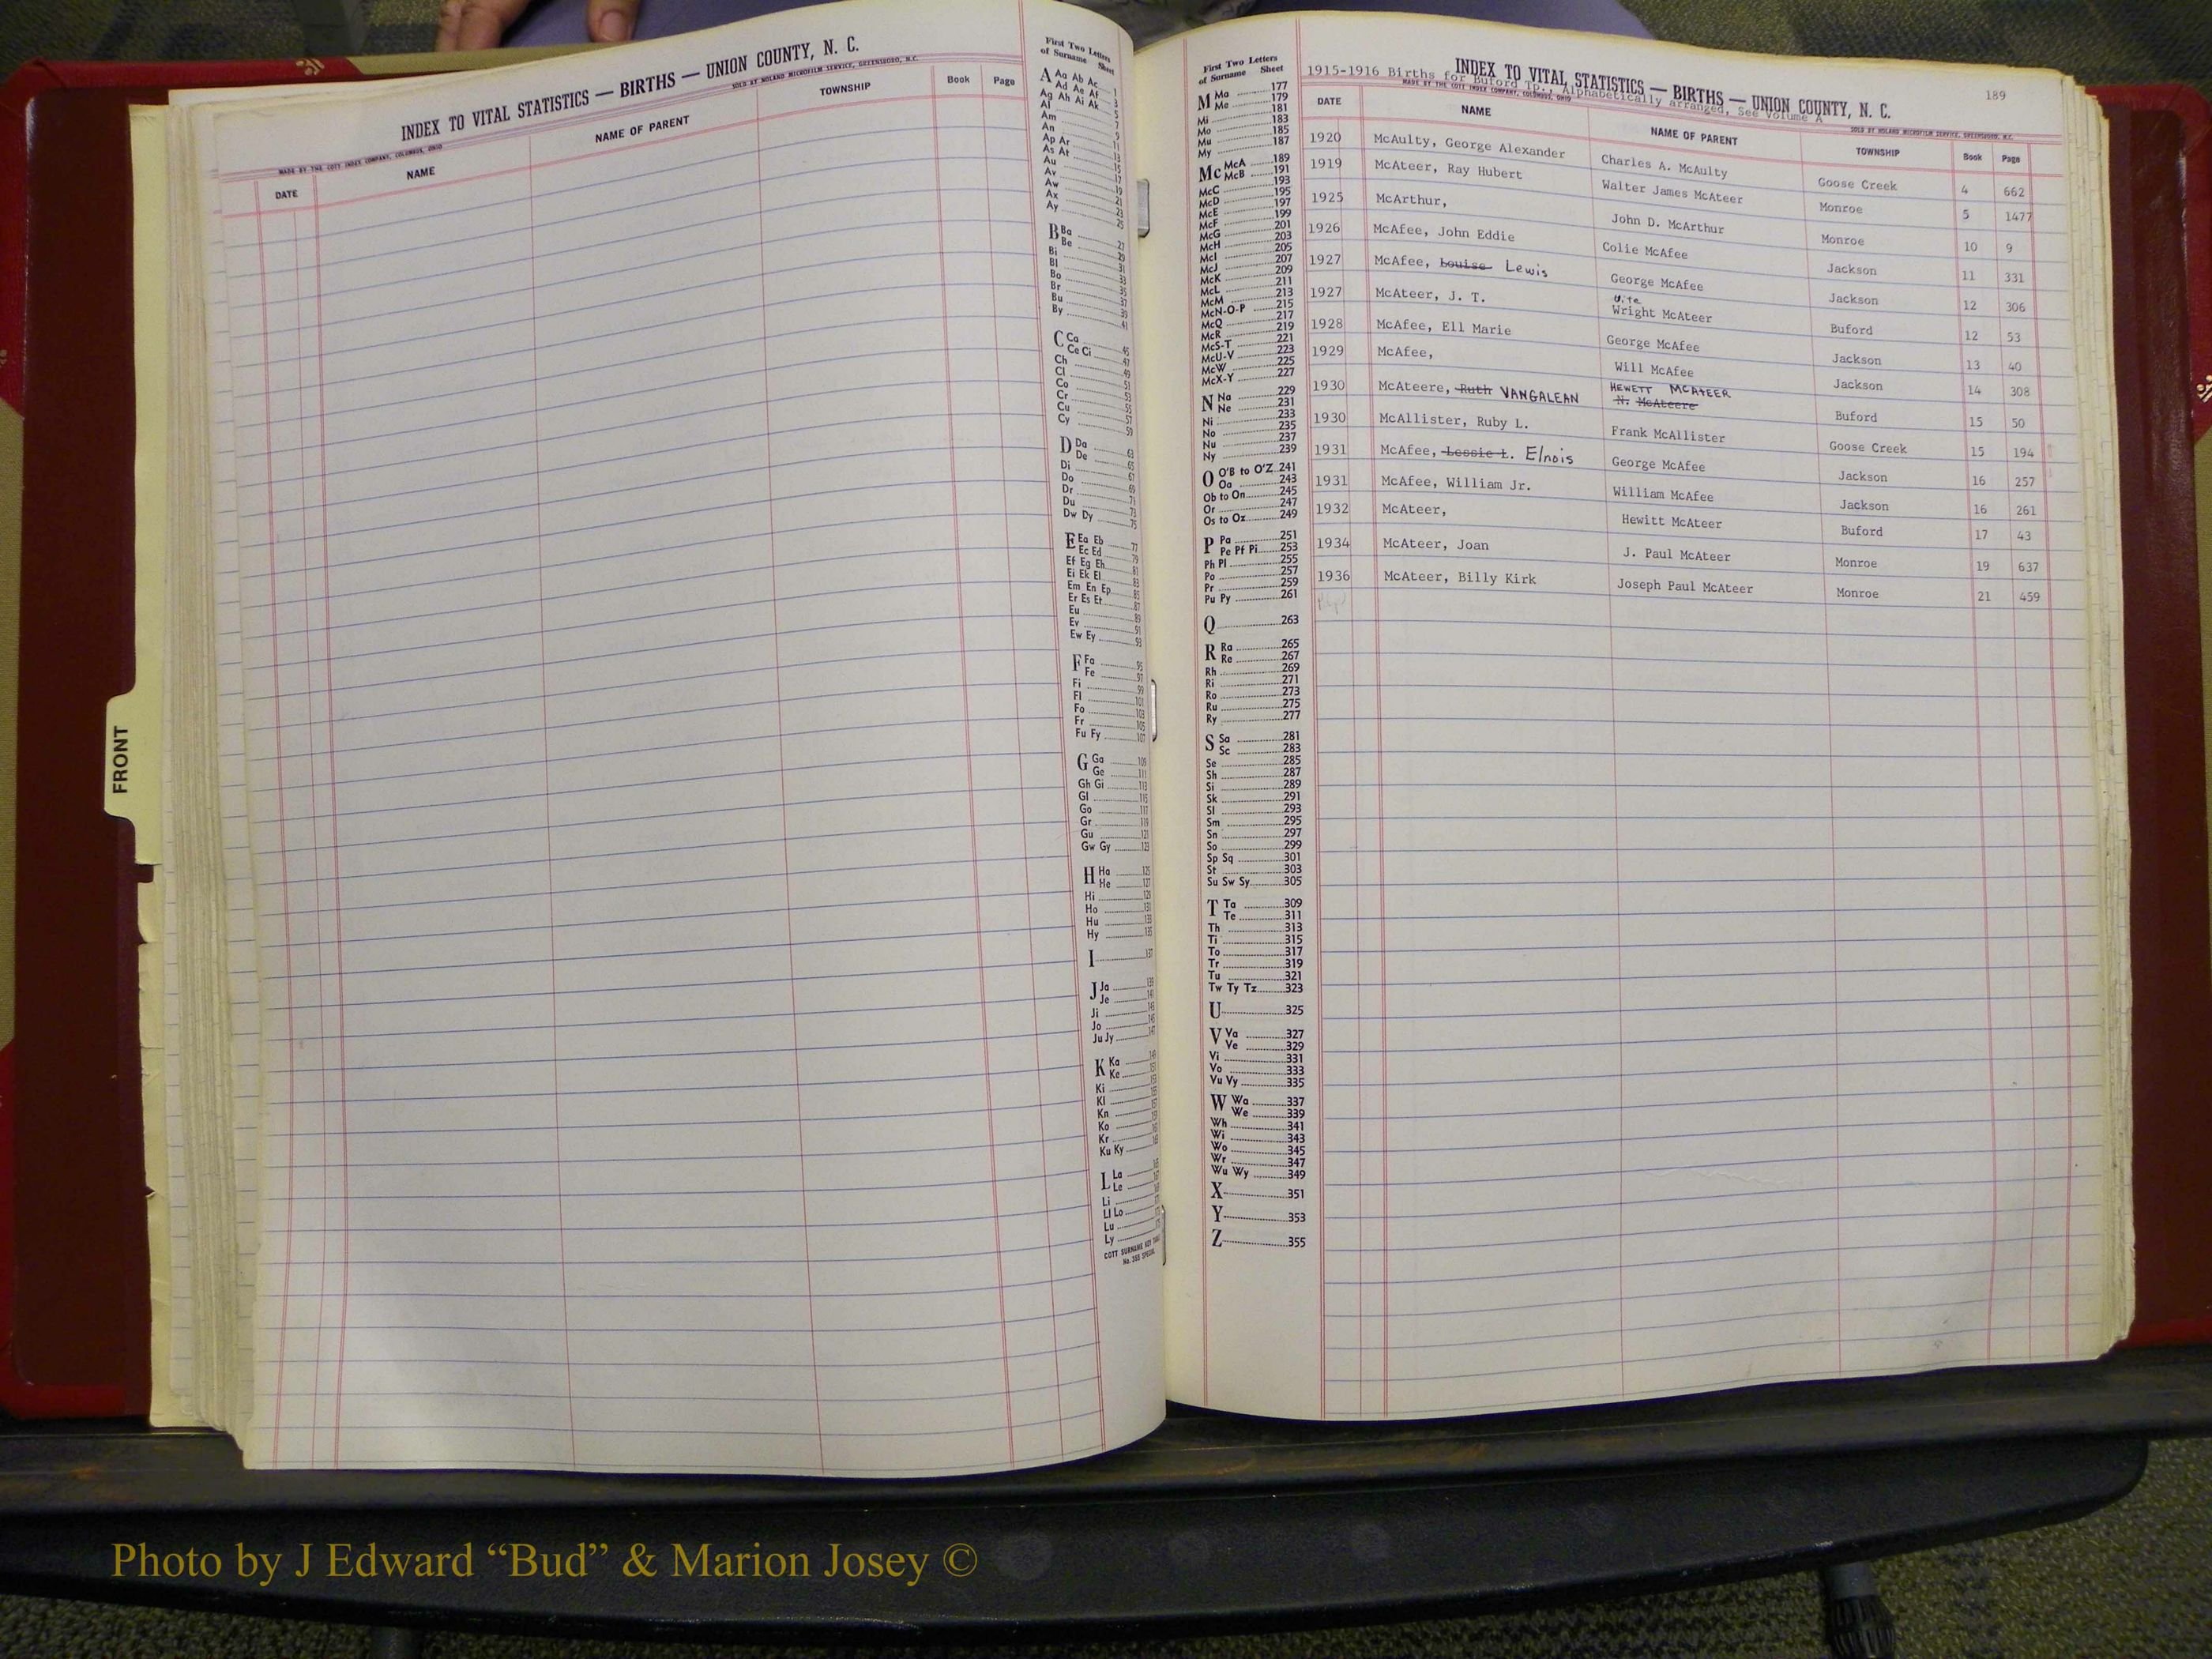 FRONT
INDEX TO VITAL STATISTICS — BIRTHS — UNION COUNTY, N. C.
MADE BY THE COTT INDEX COMPANY, COLUMBUS, OHIO SOLD BY NOLAND MICROFILM SERVICE, GREENSBORO, N.C.
DATE NAME NAME OF PARENT TOWNSHIP Book Page
First Two Letters
of Surname Sheet
A Aa Ab Ac 1
Ad Ae Af 3
Ag Ah Ai Ak 5
Al 7
Am 9
An 11
Ap Ar 13
As At 15
Au 17
Av 19
Aw 21
Ax 23
Ay 25
B Ba 27
Be 29
Bi 31
Bl 33
Bo 35
Br 37
Bu 39
By 41
C Ca 45
Ce Ci 47
Ch 49
Cl 51
Co 53
Cr 55
Cu 57
Cy 59
D Da 63
De 65
Di 67
Do 69
Dr 71
Du 73
Dw Dy 75
E Ea Eb 77
Ec Ed 79
Ef Eg Eh 81
Ei Ek El 83
Em En Ep 85
Er Es Et 87
Eu 89
Ev 91
Ew Ey 93
F Fa 95
Fe 97
Fi 99
Fl 101
Fo 103
Fr 105
Fu Fy 107
G Ga 109
Ge 111
Gh Gi 113
Gl 115
Go 117
Gr 119
Gu 121
Gw Gy 123
H Ha 125
He 127
Hi 129
Ho 131
Hu 133
Hy 135
I 137
J Ja 139
Je 141
Ji 143
Jo 145
Ju Jy 147
K Ka 149
Ke
Ki
Kl
Kn
Ko
Kr
Ku Ky
L La
Le
Li
Ll Lo
Lu
Ly
COTT SURNAME KEY TABLE
No. 350 SPECIAL
First Two Letters
of Surname Sheet
M Ma 177
Me 179
Mi 181
Mo 183
Mu 185
My 187
Mc McA 189
McB 191
McC 193
McD 195
McE 197
McF 199
McG 201
McH 203
McI 205
McJ 207
McK 209
McL 211
McM 213
McN-O-P 215
McQ 217
McR 219
McS-T 221
McU-V 223
McW 225
McX-Y 227
N Na 229
Ne 231
Ni 233
No 235
Nu 237
Ny 239
O O'B to O'Z 241
Oa 243
Ob to On 245
Or 247
Os to Oz 249
P Pa 251
Pe Pf Pi 253
Ph Pl 255
Po 257
Pr 259
Pu Py 261
Q 263
R Ra 265
Re 267
Rh 269
Ri 271
Ro 273
Ru 275
Ry 277
S Sa 281
Sc 283
Se 285
Sh 287
Si 289
Sk 291
Sl 293
Sm 295
Sn 297
So 299
Sp Sq 301
St 303
Su Sw Sy 305
T Ta 309
Te 311
Th 313
Ti 315
To 317
Tr 319
Tu 321
Tw Ty Tz 323
U 325
V Va 327
Ve 329
Vi 331
Vo 333
Vu Vy 335
W Wa 337
We 339
Wh 341
Wi 343
Wo 345
Wr 347
Wu Wy 349
X 351
Y 353
Z 355
189
INDEX TO VITAL STATISTICS — BIRTHS — UNION COUNTY, N. C.
1915-1916 Births for Buford Tp., Alphabetically arranged, See Volume A
MADE BY THE COTT INDEX COMPANY, COLUMBUS, OHIO SOLD BY NOLAND MICROFILM SERVICE, GREENSBORO, N.C.
DATE NAME NAME OF PARENT TOWNSHIP Book Page
1920 McAulty, George Alexander Charles A. McAulty Goose Creek 4 662
1919 McAteer, Ray Hubert Walter James McAteer Monroe 5 1477
1925 McArthur, John D. McArthur Monroe 10 9
1926 McAfee, John Eddie Colie McAfee Jackson 11 331
1927 McAfee, Louise Lewis George McAfee Jackson 12 306
1927 McAteer, J. T. Wright McAteer Buford 12 53
1928 McAfee, Ell Marie George McAfee Jackson 13 40
1929 McAfee, Will McAfee Jackson 14 308
1930 McAteere, Ruth VANGALEAN HEWETT MCATEER N. McAteere Buford 15 50
1930 McAllister, Ruby L. Frank McAllister Goose Creek 15 194
1931 McAfee, Lessie L. Elnois George McAfee Jackson 16 257
1931 McAfee, William Jr. William McAfee Jackson 16 261
1932 McAteer, Hewitt McAteer Buford 17 43
1934 McAteer, Joan J. Paul McAteer Monroe 19 637
1936 McAteer, Billy Kirk Joseph Paul McAteer Monroe 21 459
Photo by J Edward “Bud” & Marion Josey ©